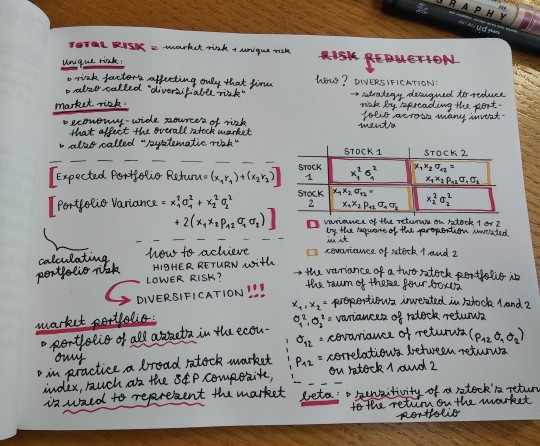 GRAPHY
TOTAL RISK = market risk + unique risk
Unique risk:
▹ risk factors affecting only that firm
▹ also called "diversifiable risk"
Market risk:
▹ economy-wide sources of risk
that affect the overall stock market
▹ also called "systematic risk"
[Expected Portfolio Return = (x₁r₁) + (x₂r₂)]
[Portfolio Variance = x₁²σ₁² + x₂²σ₂²
+ 2(x₁x₂ρ₁₂σ₁σ₂)]
calculating
portfolio risk
how to achieve
HIGHER RETURN with
LOWER RISK?
DIVERSIFICATION!!!
market portfolio:
▹ portfolio of all assets in the econ-
omy
▹ in practice a broad stock market
index, such as the S&P composite,
is used to represent the market
RISK REDUCTION
how? DIVERSIFICATION:
→ strategy designed to reduce
risk by spreading the port-
folio across many invest-
ments
STOCK 1 STOCK 2
STOCK 1 x₁²σ₁² x₁x₂σ₁₂ =
x₁x₂ρ₁₂σ₁σ₂
STOCK 2 x₁x₂σ₁₂ =
x₁x₂ρ₁₂σ₁σ₂ x₂²σ₂²
variance of the returns on stock 1 or 2
by the square of the proportion invested
in it
covariance of stock 1 and 2
→ the variance of a two stock portfolio is
the sum of these four boxes
x₁, x₂ = proportions invested in stock 1 and 2
σ₁², σ₂² = variances of stock returns
σ₁₂ = covariance of returns (ρ₁₂σ₁σ₂)
ρ₁₂ = correlations between returns
on stock 1 and 2
beta: ▹ sensitivity of a stock's return
to the return on the market
portfolio